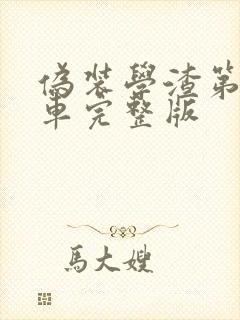 偽裝學渣第
車完整版
馬大嫂